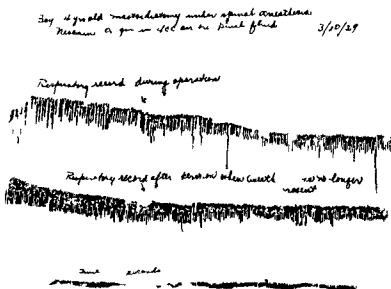 Boy 4 yr old mastoidectomy under spinal anesthesia
Neocaine gm in 4cc spinal fluid 3/20/29
Respiratory record during operation
Respiratory record after when anesth no longer
present
Time seconds